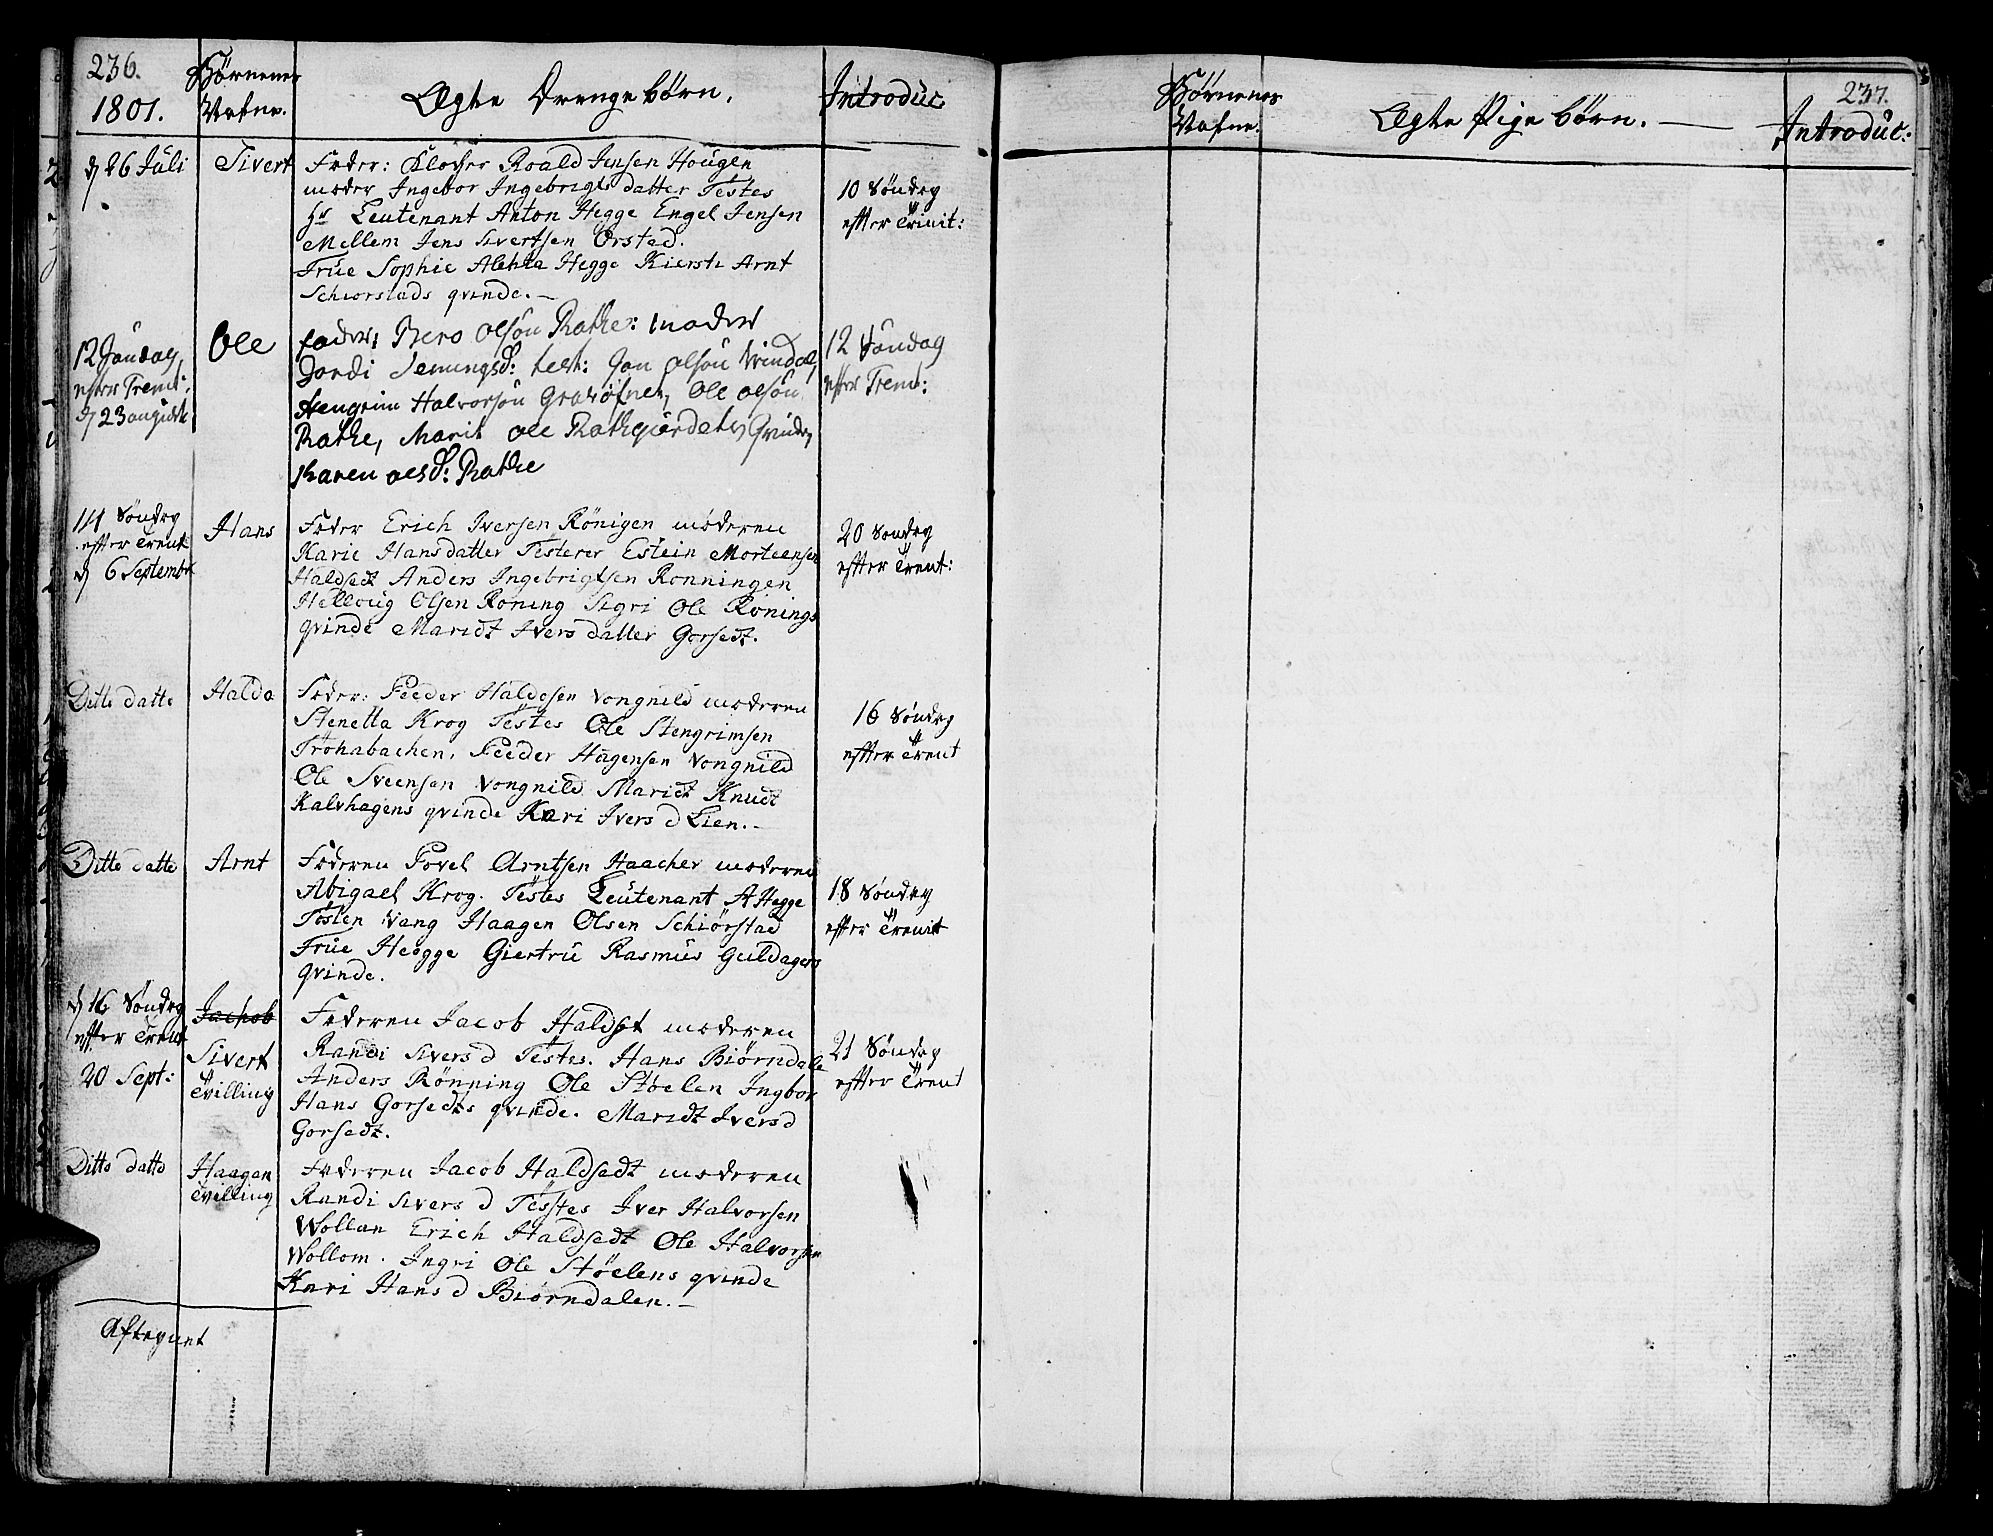 236.
1801.
Börnenes
Nafne.
Ægte Drenge börn.
Introduc
d 26 Juli
Sivert
Fader: Klocher Roald Jensen Hougen
moder Ingebor Ingebrigts datter Testes
hr Leutenant Anton Hegge Engel Jensen
Mellem Jens Sivertsen Örsted.
Frue Sophie Alehta Hegge Kiersti Arnt
Schiorstads qvinde.—
10 Söndag
efter Trinit:
12 Söndag
efter Trenit:
d 23 augusti
Ole
fader, Bero olsön Rathe: moder
Jordi Jemingsd: test: Jon olsön Vindal,
Stengrim Halvorsön Gravöfner, Ole olsön
Rathe, Marit Ole Rathgierdets Qvinde,
Karen olsd: Rathe
12 Söndag
efter Trenit:
14 Söndag
efter Trenit
d 6 Septembr
Hans
Fader Erich Iversen Rönigen moderen
Karie Hansdatter Testerer Estein Morteensen
Haldsedt Anders Ingebrigtsen Ronningen
Hellvig Olsen Roning Sigri Ole Rönings
qvinde Maridt Ivers datter Gorsedt.
20 Söndag
efter Trent:
Ditto datto
Haldo
Fader: Peeder Haldosen Vongnild moderen
Stenetta Krog Testes Ole Stengrimsen
Trohabachen, Peeder Hagensen Vongnild
Ole Sveensen Vongnild Maridt Knudt
Kalvhagens qvinde Kari Ivers d Lien.—
16 Söndag
efter Trent
Ditto datto
Arnt
Faderen Povel Arntsen Haacher moderen
Abigael Krog. Testes Leutenant A Hegge
Tosten Vang Haagen Olsen Schiörstad
Frue Heogge Giertru Rasmus Guldagers
qvinde.
18 Söndag
efter Trenit
d 16 Söndag
efter Trent
20 Sept:
Jachob
Sivert
Tvilling
Faderen Jacob Haldset moderen
Randi Sivers d Testes. Hans Biörndale
Anders Rönning Ole Stöelen Ingbor
Hans Gorsedts qvinde. Maridt Ivers d
Gorsedt.
21 Söndag
efter Trent
Ditto datto
Haagen
Tvilling
Faderen Jacob Haldsedt moderen
Randi Sivers d Testes Iver Halvorsen
Wollan Erich Haldsedt Ole Halvorsen
Wollom. Ingri Ole Stöelens qvinde
Kari Hans d Biörndalen.—
Aftegnet
237.
Börnenes
Nafne.
Ægte Pige börn.—
Introduc: